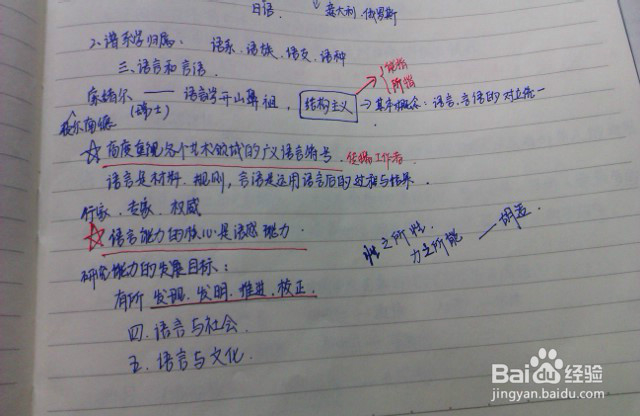 日语 意大利.俄罗斯
2.谱系学归属: 语系.语族.语支.语种
三.语言和言语.
索绪尔 —— 语言学开山鼻祖, 结构主义 → 其中概念:语言、言语的对立统一.
能指
所指
(瑞士)
☆ 高度重视各个艺术领域的广义语言符号. 传播工作者
语言是材料.规则,言语是运用语言后的过程与结果.
行家、专家、权威
☆ 语言能力的核心是语感能力.
研究能力的发展目标:
有所 发现.发明.推进.校正.
性之所 力之所能 —
四.语言与社会.
五.语言与文化.
Baidu经验
jingyan.baidu.com